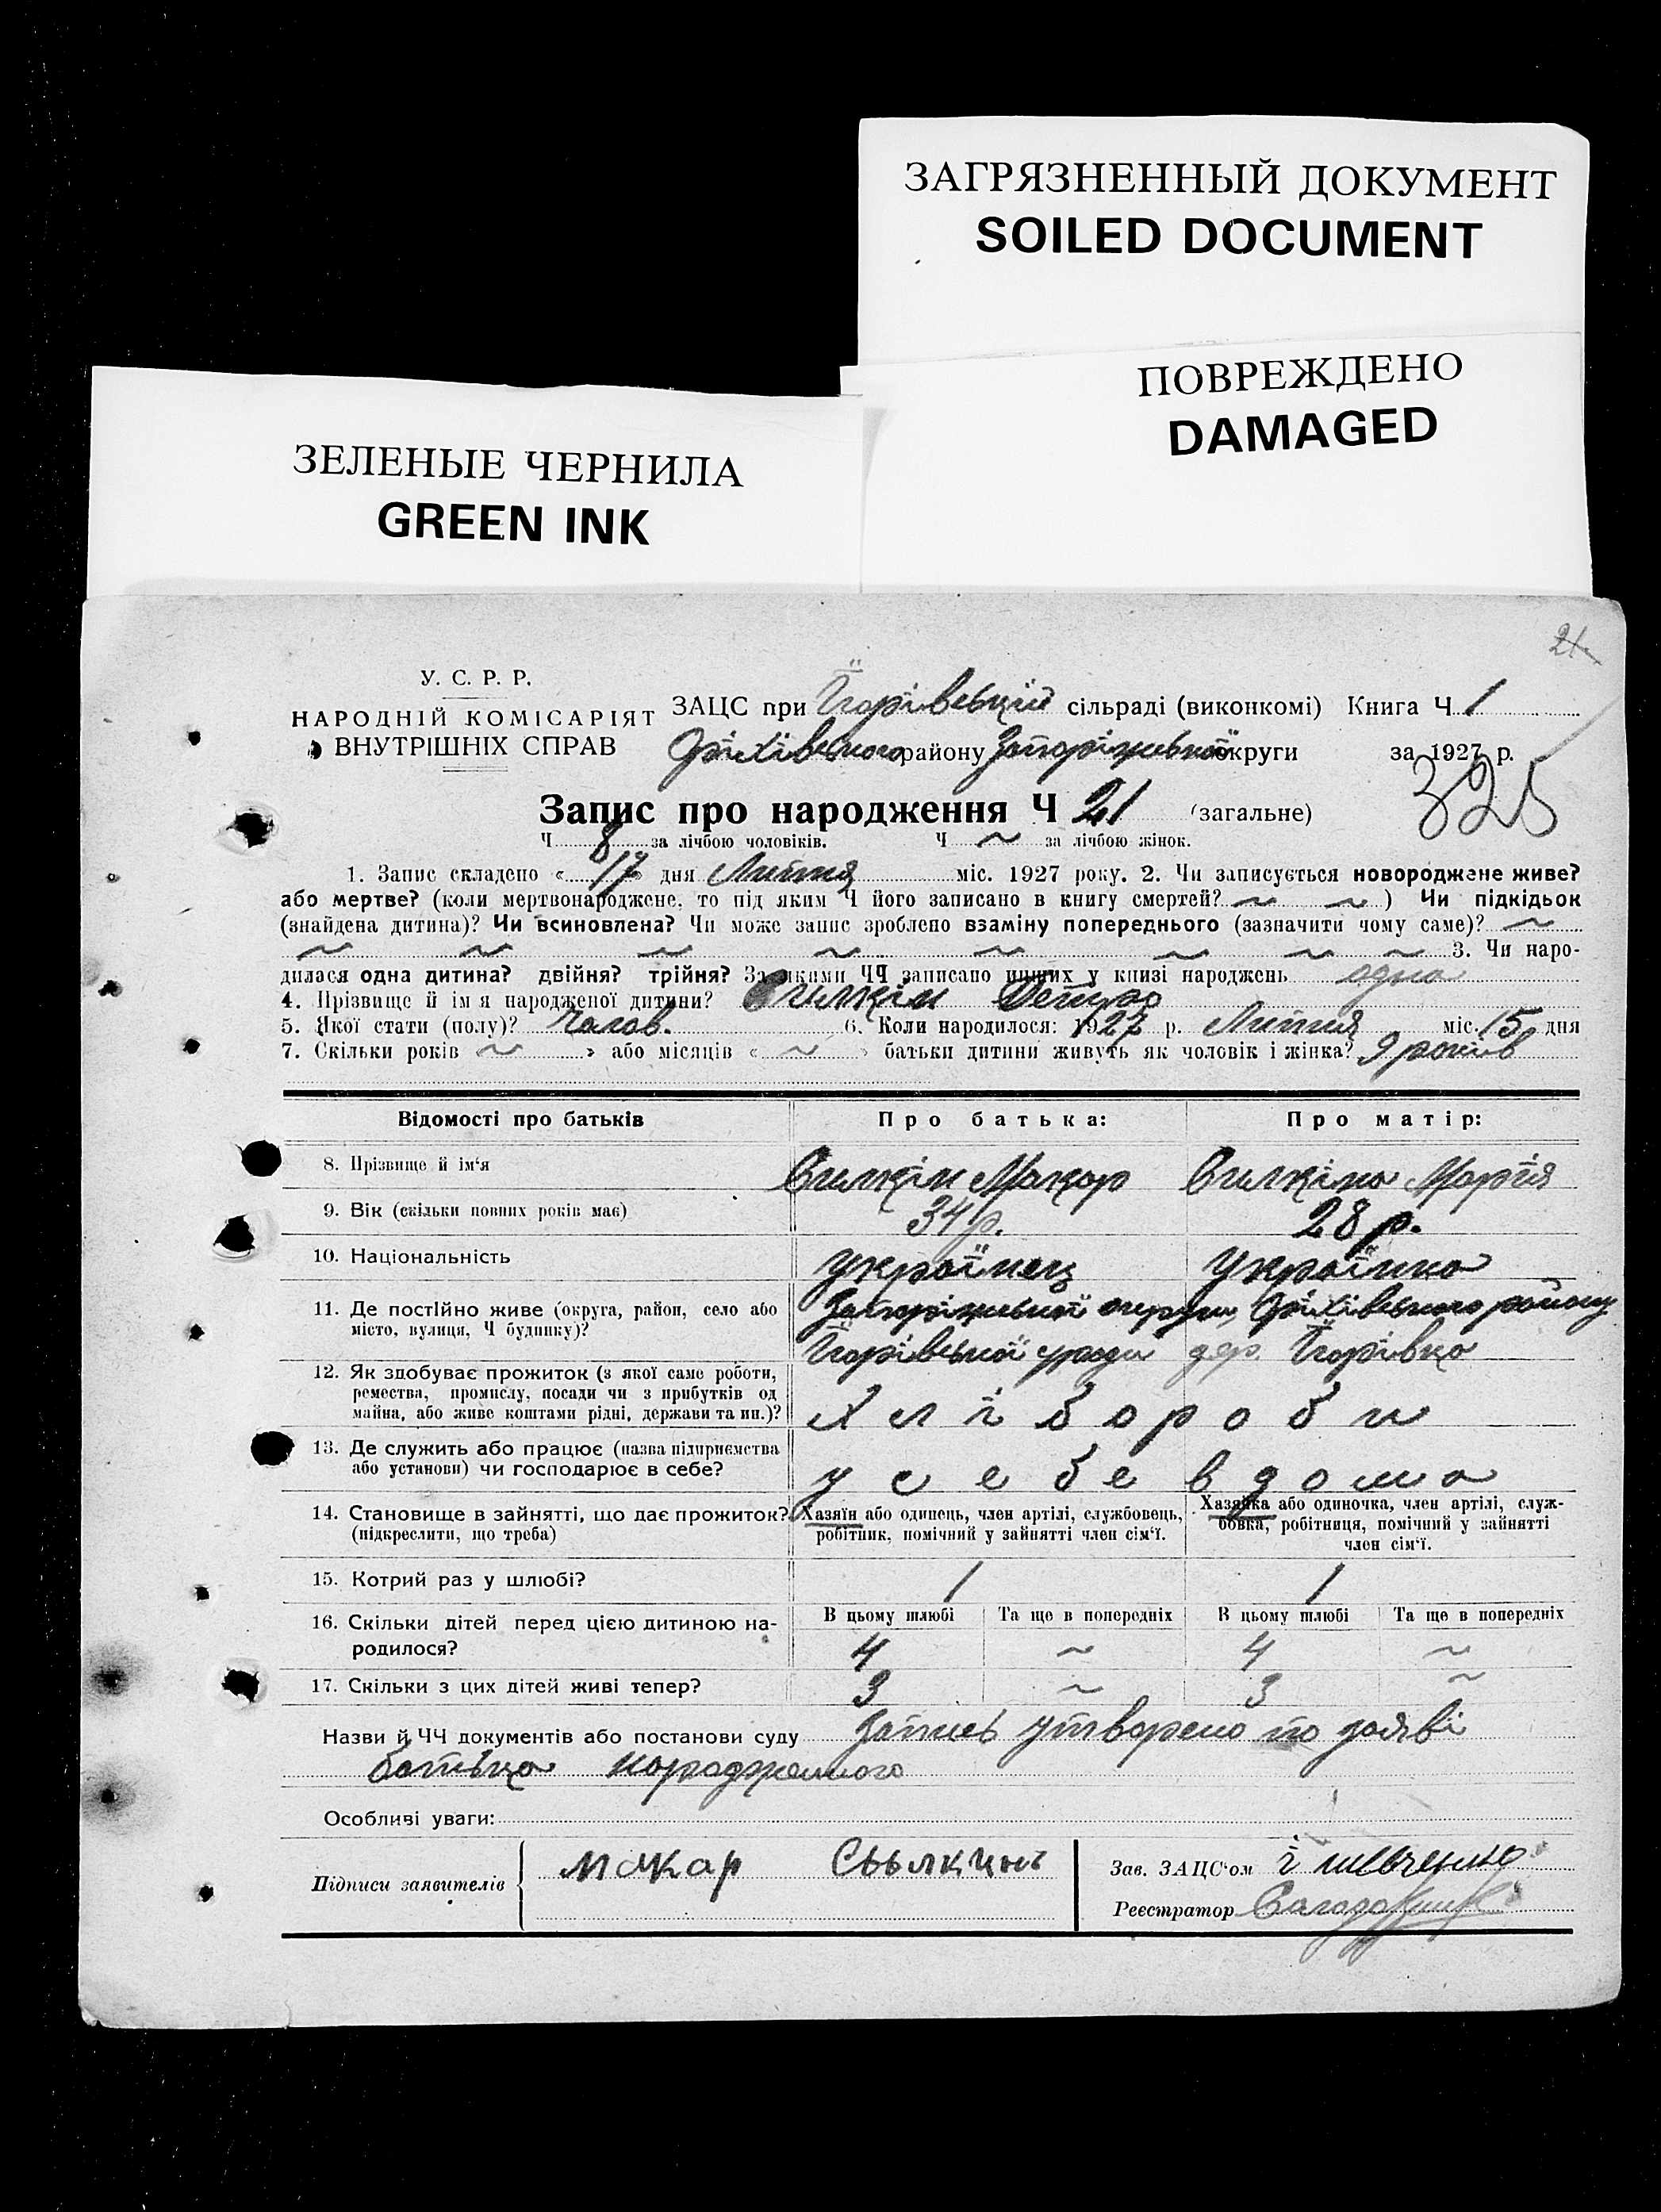 ЗАГРЯЗНЕННЫЙ ДОКУМЕНТ
SOILED DOCUMENT
ПОВРЕЖДЕНО
DAMAGED
ЗЕЛЕНЫЕ ЧЕРНИЛА
GREEN INK
21
У. С. Р. Р.
НАРОДНІЙ КОМІСАРІЯТ
ВНУТРІШНІХ СПРАВ
ЗАЦС при сільраді (виконкомі) Книга Ч 1
Оріхівського району Запоріжської округи за 1927 р.
325
Запис про народження Ч 21 (загальне)
Ч 8 за лічбою чоловіків. Ч ~ за лічбою жінок.
1. Запис складено « 17 » дня Липня міс. 1927 року. 2. Чи записується новороджене живе?
або мертве? (коли мертвонароджене, то під яким Ч його записано в книгу смертей? ~ ~ ) Чи підкідьок
(знайдена дитина)? Чи всиновлена? Чи може запис зроблено взаміну попереднього (зазначити чому саме)? ~
~ ~ ~ ~ ~ ~ ~ ~ 3. Чи наро-
дилася одна дитина? двійня? трійня? За якими ЧЧ записано инших у книзі народжень одна
4. Прізвище й ім я народженої дитини? Петро
5. Якої стати (полу)? Чолов. 6. Коли народилося: 1927 р. Липня міс. 15 дня
7. Скільки років ~ » або місяців « ~ » батьки дитини живуть як чоловік і жінка? 9 років
Відомості про батьків Про батька: Про матір:
8. Прізвище й ім‘я Макар Марія
9. Вік (скільки повних років має) 34 р. 28 р.
10. Національність українец Українка
11. Де постійно живе (округа, район, село або Запоріжської округи, Оріхівського району
місто, вулиця, Ч будинку)?
12. Як здобуває прожиток (з якої саме роботи,
ремества, промислу, посади чи з прибутків од
майна, або живе коштами рідні, держави та ин.)? Хлібороби
13. Де служить або працює (назва підприємства
або установи) чи господарює в себе? у себе вдома
14. Становище в зайнятті, що дає прожиток? Хазяїн або одинець, член артілі, службовець, Хазяйка або одиночка, член артілі, служ-
(підкреслити, що треба) робітник, помічний у зайнятті член сім‘ї. бовка, робітниця, помічний у зайнятті
член сім‘ї.
15. Котрий раз у шлюбі? 1 1
В цьому шлюбі Та ще в попередніх В цьому шлюбі Та ще в попередніх
16. Скільки дітей перед цією дитиною на-
родилося? 4 ~ 4 ~
17. Скільки з цих дітей живі тепер? 3 ~ 3 ~
Назви й ЧЧ документів або постанови суду Запись утворено по заяві
батька народженного
Особливі уваги:
Підписи заявителів Макар Зав. ЗАЦС‘ом і шевченко
Реєстратор